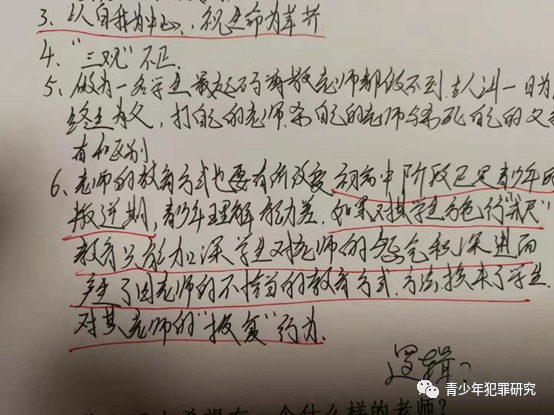 3、以自我为中心,视生命为草芥
4、“三观”不正.
5、做为一名学生最起码尊敬老师都做不到,古人讲一日为
终生为父,打自己的老师.杀自己的老师与杀死自己的父
有和区别.
6、老师的教育方式也要有所改变,初高中阶段正是青少年的
叛逆期,青少年理解能力差.如果对其学生方式
教育只能加深学生对老师的怨念积深进而
产生了因老师的不恰当的教育方式.方法换来了学生
对其老师的“报复”行为.
逻辑?
青少年犯罪研究
一个什么样的老师?